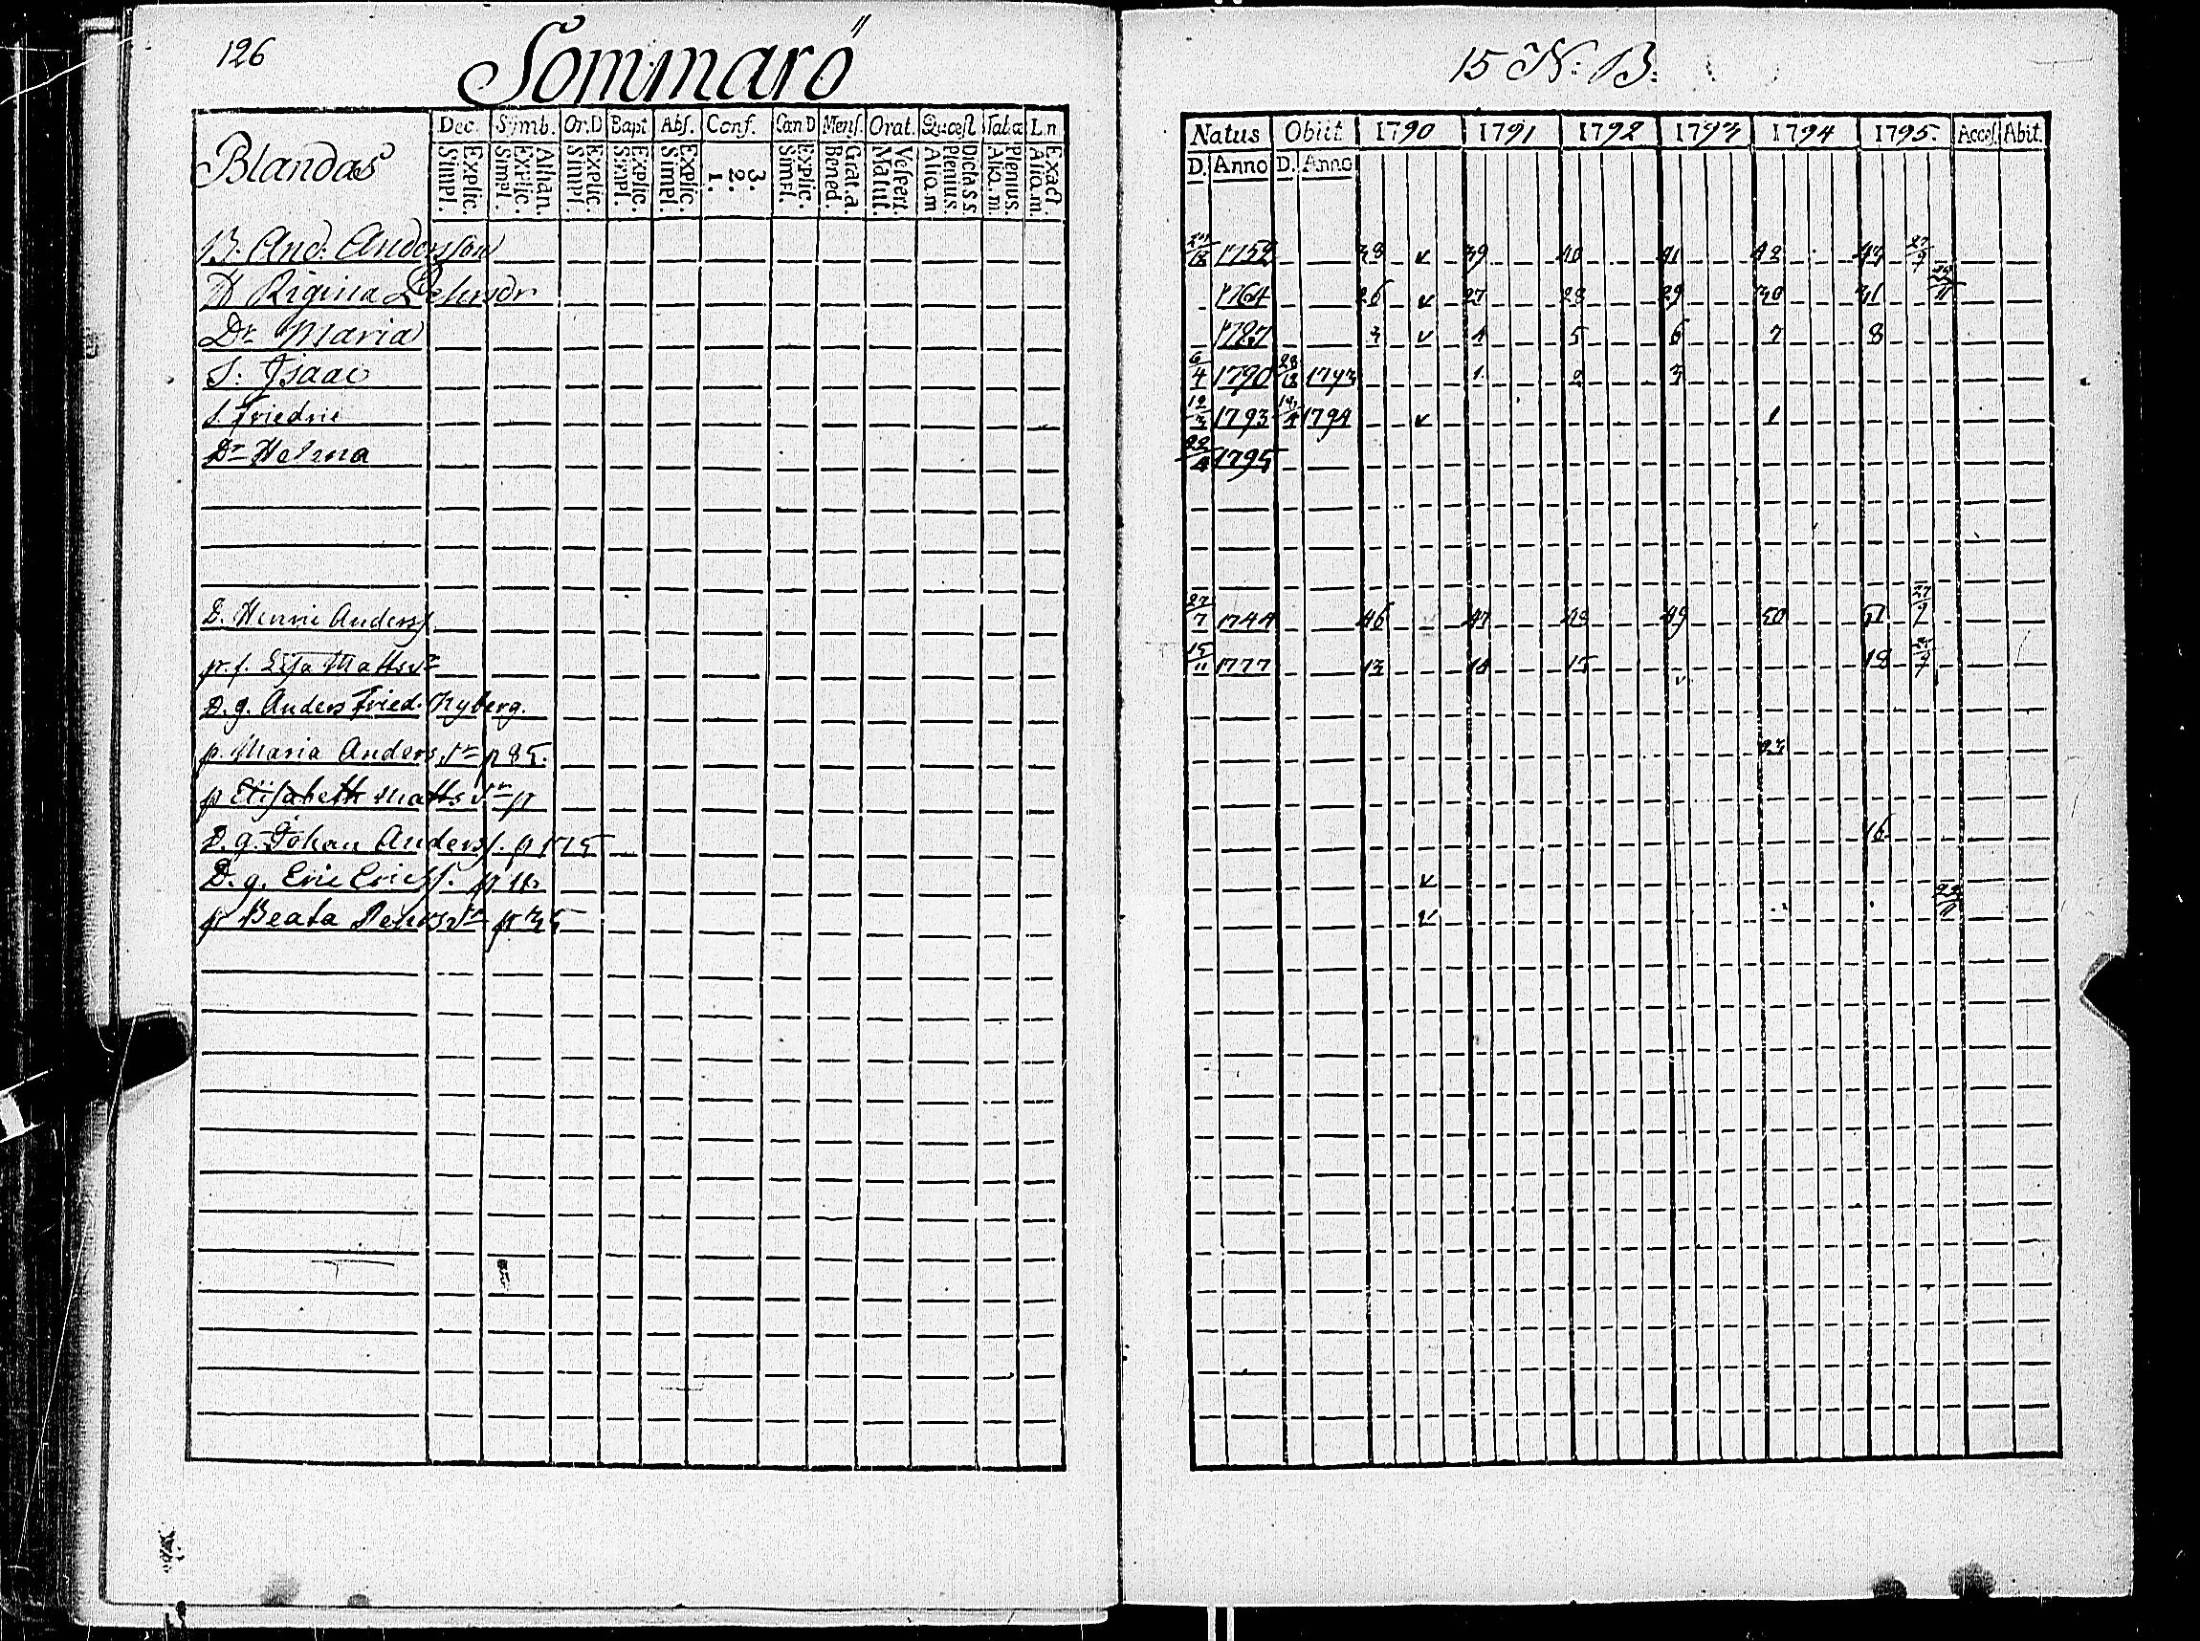 126 Sommarö
Dec. Symb. Or.D Bapt Abs. Conf. Can D Mens. Orat. Quæst Tabæ L.n
Blandas Simpl. Explic. Simpl. Explic. Athan. Simpl. Explic. Simpl. Explic. Simpl. Explic. 1. 2. 3. Simpl. Explic. Bened Grat.a. Matut. Vespert. Aliq.m Plenius. Dicta S.S. Aliq.m. Plenius. Aliq.m. Exact.
B. And: Andersson
H Regina
Dr Maria
S: Isaac
S. Friedric
Dr Helena
D. Henric Anderss.
p. f. Lisa Mattsdr
D. g. Anders Fried. Nyberg.
p. Maria Andersdr p 85.
p Elisabeth Mattsdr p
D. g. Johan Anderss. p 115
D. g. Eric Ericss. p
p Beata p 35
15 N: B:
Natus Obiit 1790 1791 1792 1793 1794 1795 Access. Abit.
D. Anno D. Anno
1752 38 v 39 40 41 42 43 27/9
1764 26 v 27 28 29 30 31 22/11
1787 3 v 4 5 6 7 8
6/4 1790 28/12 1793 1 2 3
12/3 1793 1794 v 1
22/4 1795
27/7 1744 46 47 48 49 50 51 27/9
15/11 1777 13 14 15 18 27/9
23
16
v
v 22/11